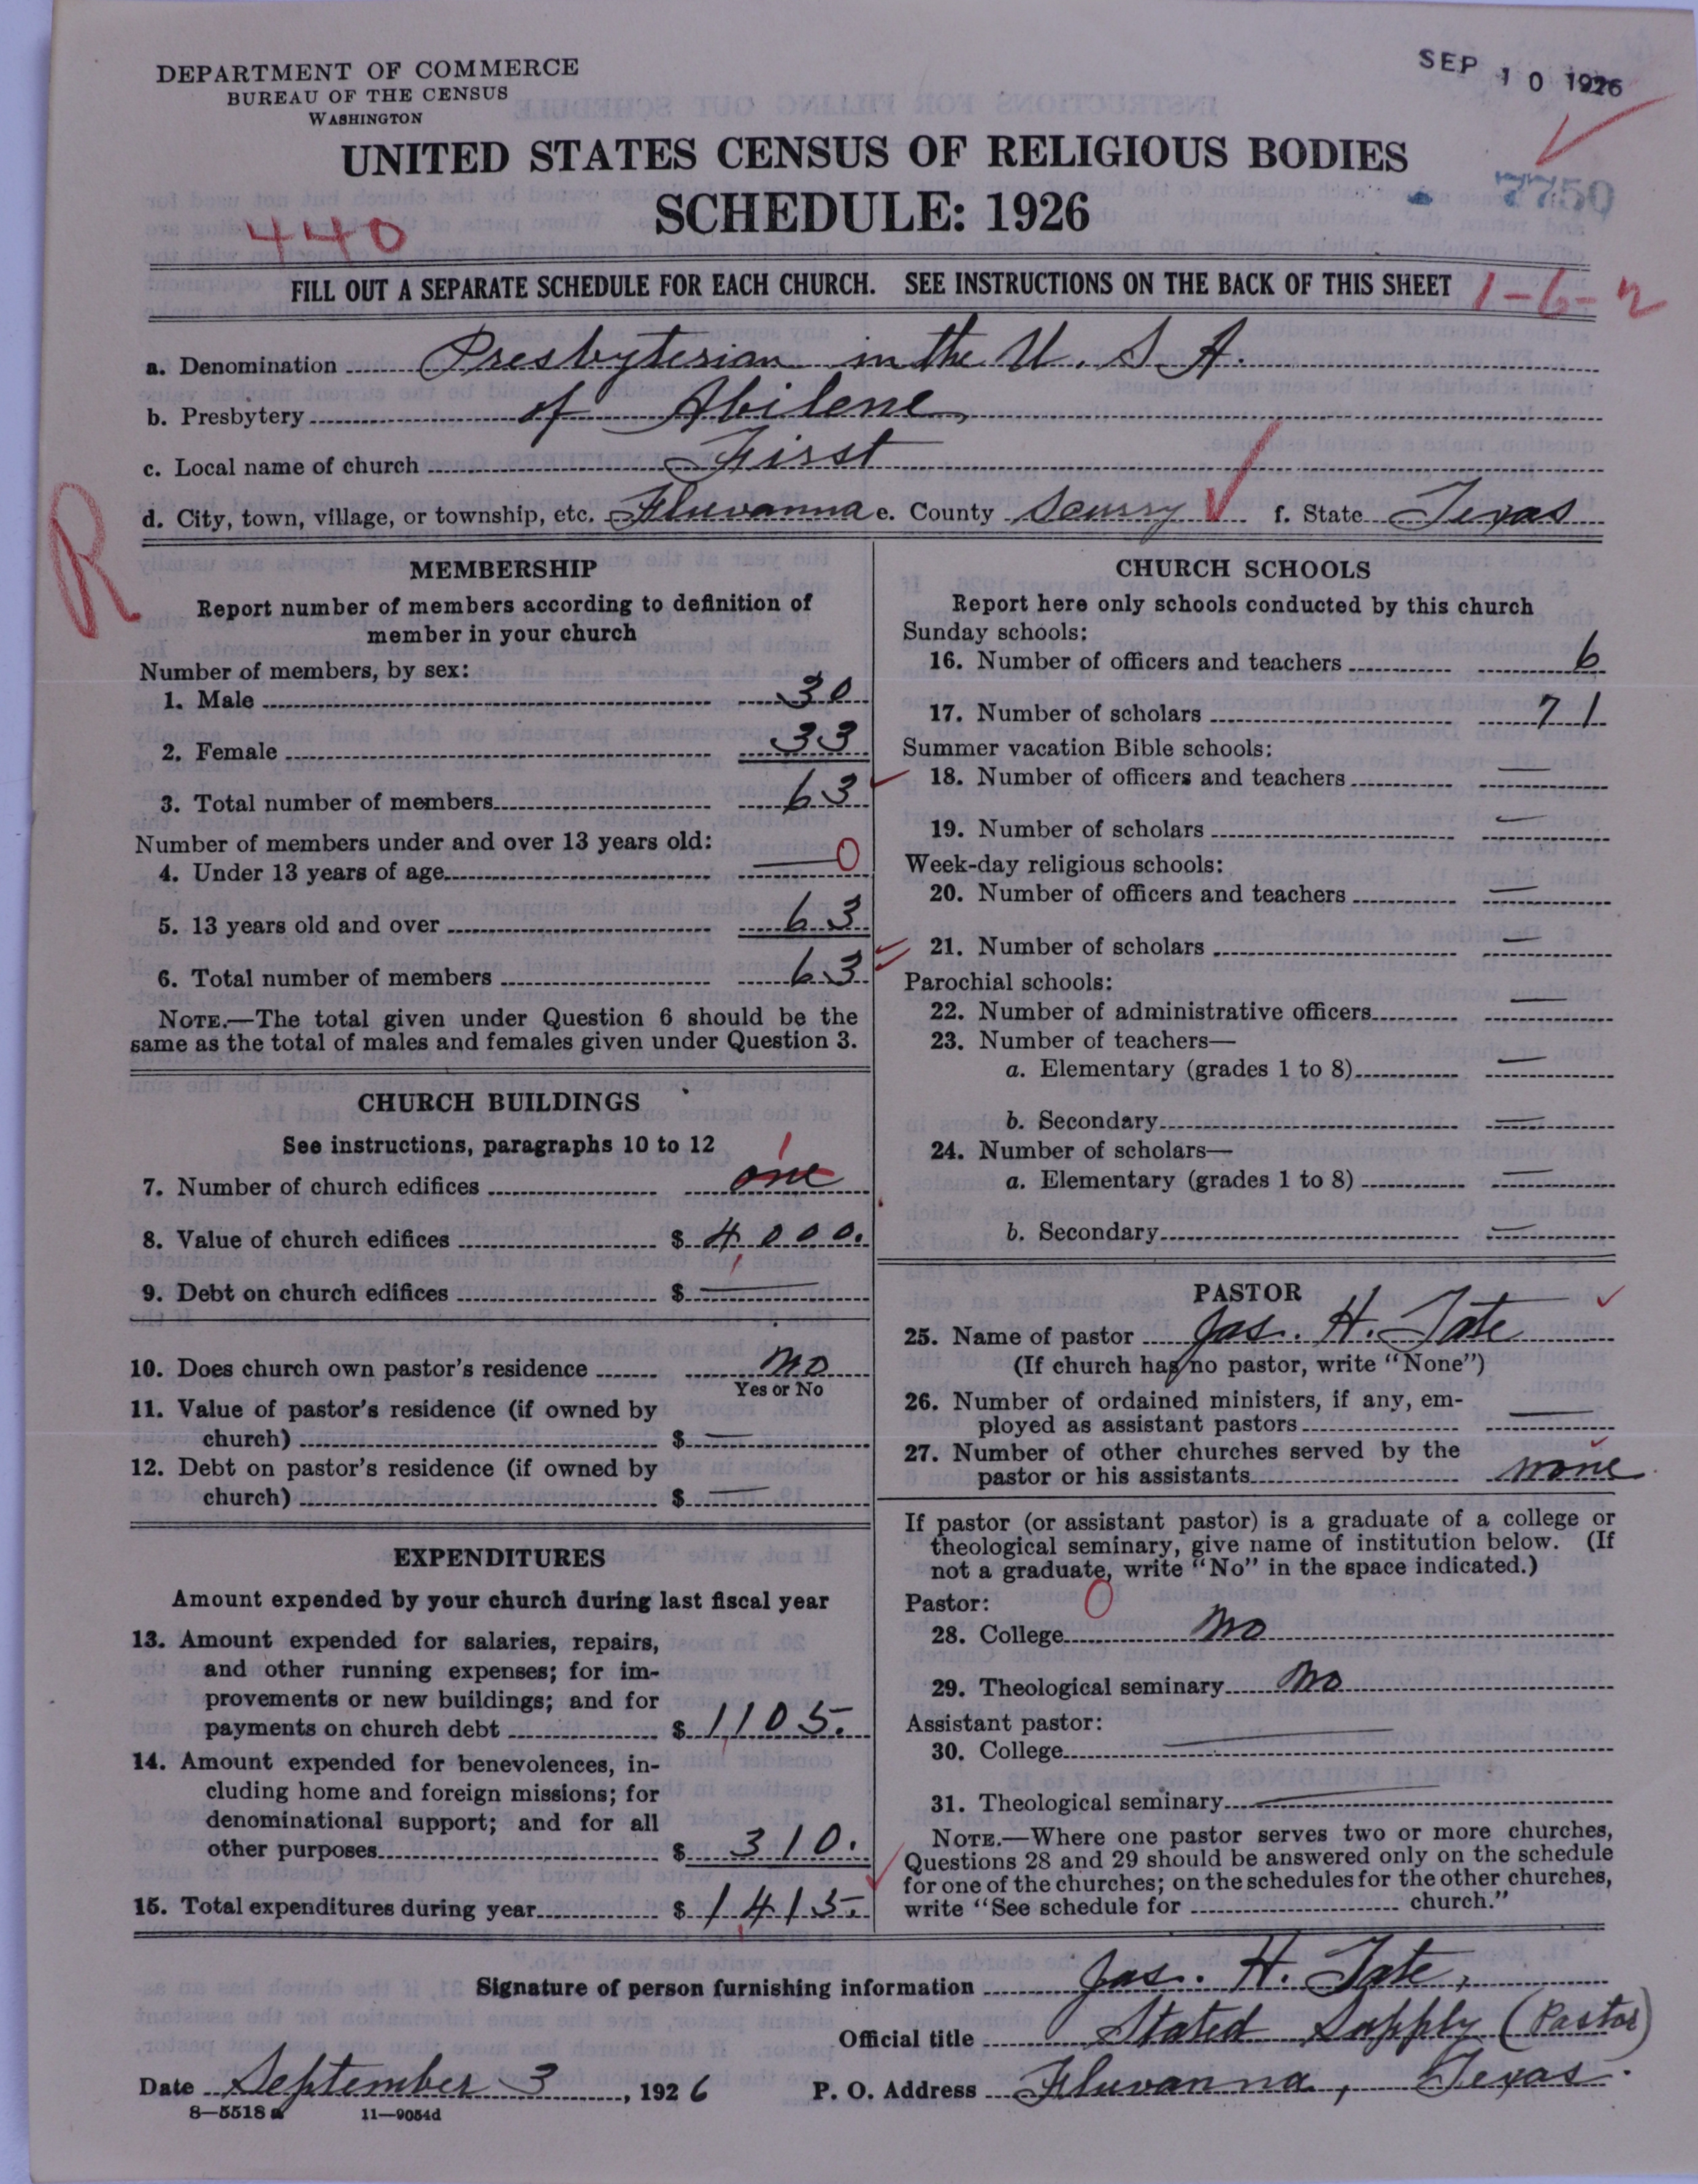 DEPARTMENT OF COMMERCE
BUREAU OF THE CENSUS
WASHINGTON
SEP 10 1926
UNITED STATES CENSUS OF RELIGIOUS BODIES
SCHEDULE: 1926
7750
440
FILL OUT A SEPARATE SCHEDULE FOR EACH CHURCH. SEE INSTRUCTIONS ON THE BACK OF THIS SHEET
1-6-2
a. Denomination Presbyterian in the U. S. A.
b. Presbytery of Abilene,
c. Local name of church First
d. City, town, village, or township, etc. Fluvanna e. County Scurry f. State Texas
R
MEMBERSHIP
Report number of members according to definition of
member in your church
Number of members, by sex:
1. Male 30
2. Female 33
3. Total number of members 63
Number of members under and over 13 years old:
4. Under 13 years of age — 0
5. 13 years old and over 63
6. Total number of members 63
NOTE.—The total given under Question 6 should be the
same as the total of males and females given under Question 3.
CHURCH BUILDINGS
See instructions, paragraphs 10 to 12
7. Number of church edifices one 1
8. Value of church edifices $ 4000.
9. Debt on church edifices $ —
10. Does church own pastor's residence no
Yes or No
11. Value of pastor's residence (if owned by
church) $ —
12. Debt on pastor's residence (if owned by
church) $ —
EXPENDITURES
Amount expended by your church during last fiscal year
13. Amount expended for salaries, repairs,
and other running expenses; for im-
provements or new buildings; and for
payments on church debt $ 1105.
14. Amount expended for benevolences, in-
cluding home and foreign missions; for
denominational support; and for all
other purposes $ 310.
15. Total expenditures during year $ 1415.
CHURCH SCHOOLS
Report here only schools conducted by this church
Sunday schools:
16. Number of officers and teachers 6
17. Number of scholars 71
Summer vacation Bible schools:
18. Number of officers and teachers —
19. Number of scholars —
Week-day religious schools:
20. Number of officers and teachers —
21. Number of scholars —
Parochial schools:
22. Number of administrative officers —
23. Number of teachers—
a. Elementary (grades 1 to 8) —
b. Secondary —
24. Number of scholars—
a. Elementary (grades 1 to 8) —
b. Secondary —
PASTOR
25. Name of pastor Jas. H. Tate
(If church has no pastor, write "None")
26. Number of ordained ministers, if any, em-
ployed as assistant pastors —
27. Number of other churches served by the
pastor or his assistants none
If pastor (or assistant pastor) is a graduate of a college or
theological seminary, give name of institution below. (If
not a graduate, write "No" in the space indicated.)
Pastor: 0
28. College No
29. Theological seminary No
Assistant pastor:
30. College —
31. Theological seminary —
NOTE.—Where one pastor serves two or more churches,
Questions 28 and 29 should be answered only on the schedule
for one of the churches; on the schedules for the other churches,
write "See schedule for church."
Signature of person furnishing information Jas. H. Tate,
Official title Stated Supply (Pastor)
Date September 3, 1926 P. O. Address Fluvanna, Texas.
8—5518 a 11—9054d